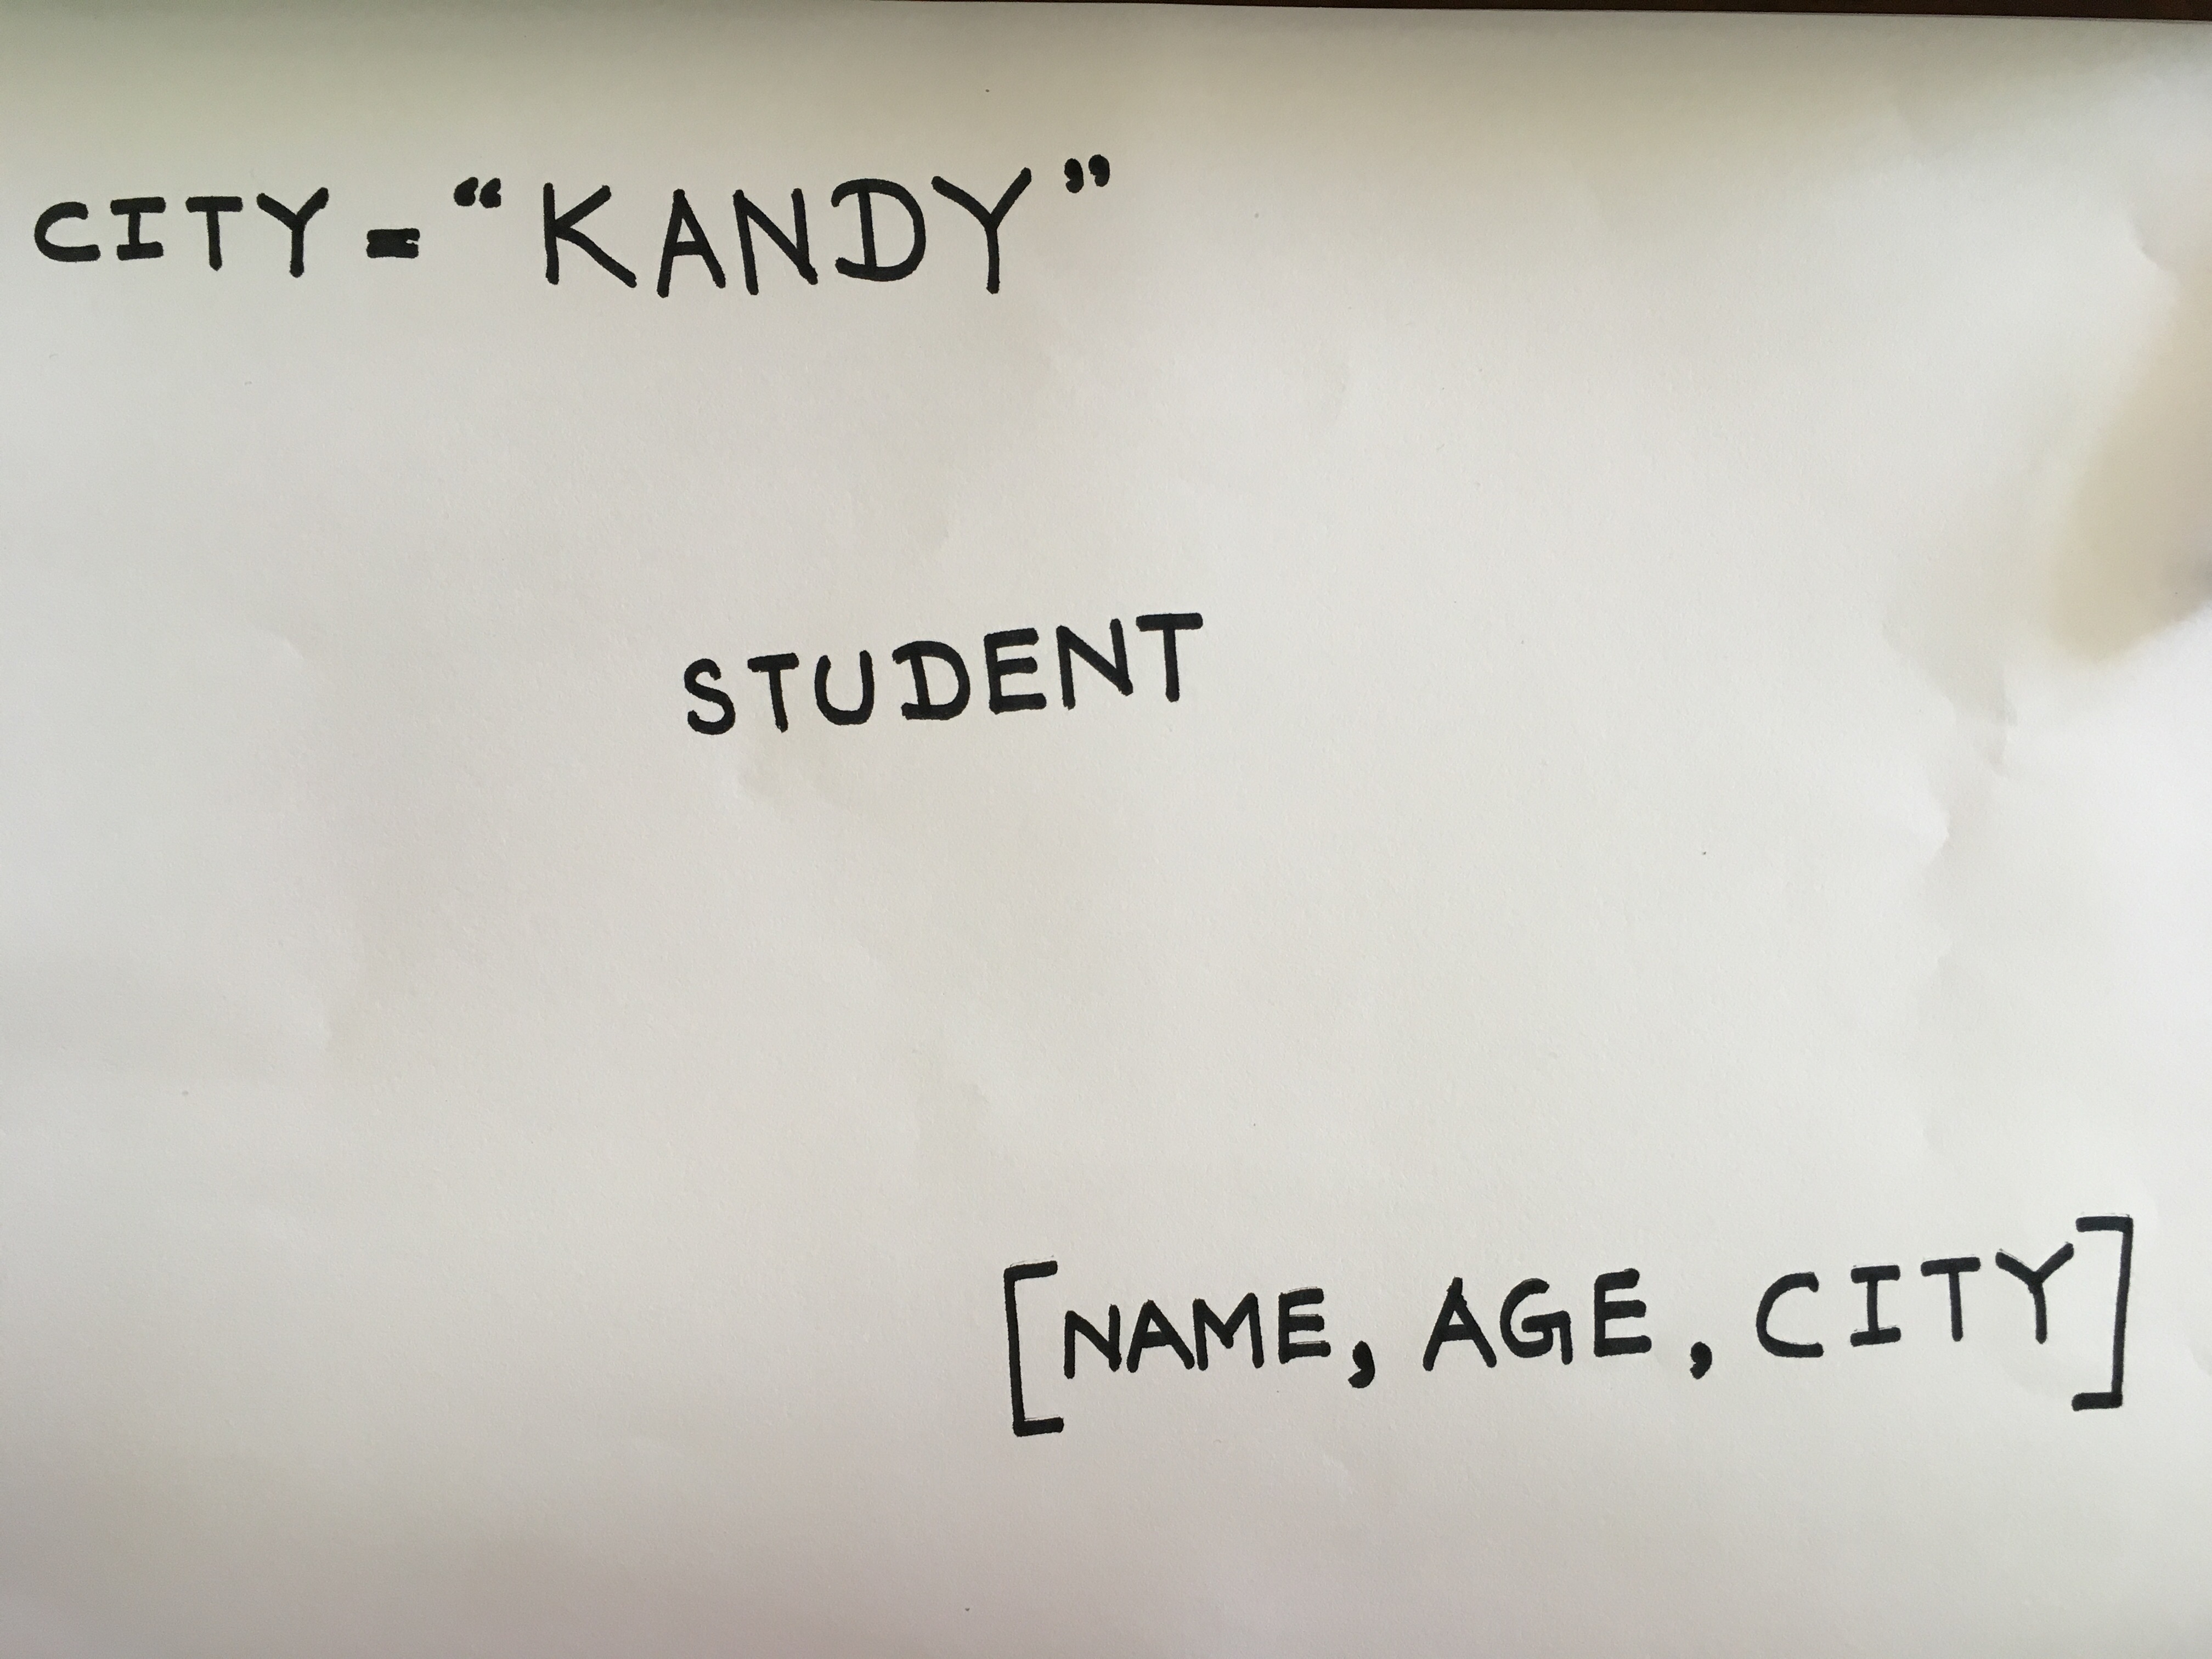 CITY = “KANDY”
STUDENT
[NAME, AGE, CITY]